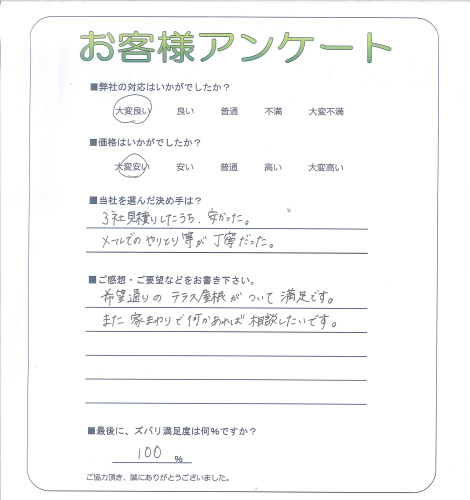 お客様アンケート
■弊社の対応はいかがでしたか？
大変良い 良い 普通 不満 大変不満
■価格はいかがでしたか？
大変安い 安い 普通 高い 大変高い
■当社を選んだ決め手は？
3社見積りしたうち、安かった。
メールでのやりとり等が丁寧だった。
■ご感想・ご要望などをお書き下さい。
希望通りの テラス屋根がついて 満足です。
また 家まわりで何かあれば 相談したいです。
■最後に、ズバリ満足度は何％ですか？
100 ％
ご協力頂き、誠にありがとうございました。